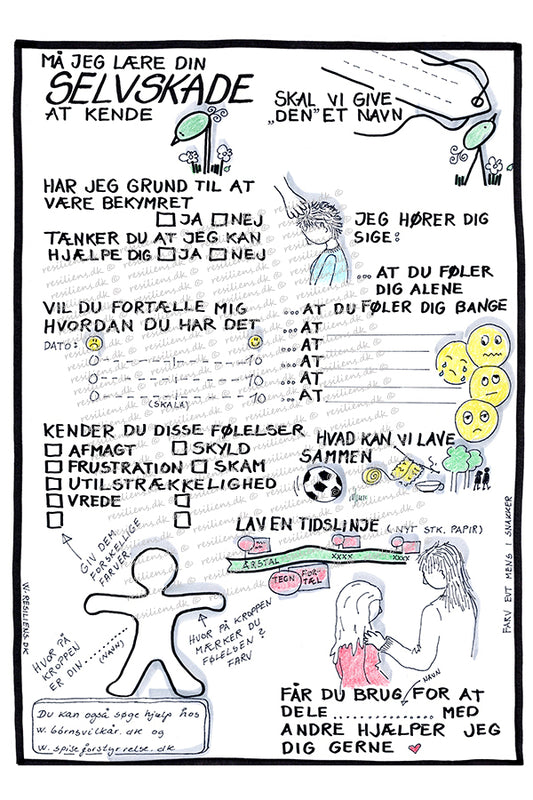 MÅ JEG LÆRE DIN
SELVSKADE
AT KENDE
SKAL VI GIVE
„DEN" ET NAVN
HAR JEG GRUND TIL AT
VÆRE BEKYMRET
JA NEJ
TÆNKER DU AT JEG KAN
HJÆLPE DIG JA NEJ
JEG HØRER DIG
SIGE:
... AT DU FØLER
DIG ALENE
... AT DU FØLER DIG BANGE
... AT
... AT
... AT
... AT
... AT
VIL DU FORTÆLLE MIG
HVORDAN DU HAR DET
DATO:
0 10
0 10
0 10
(SKALA)
KENDER DU DISSE FØLELSER
AFMAGT SKYLD
FRUSTRATION SKAM
UTILSTRÆKKELIGHED
VREDE
GIV DEM
FORSKELLIGE
FARVER.
HVAD KAN VI LAVE
SAMMEN
LAV EN TIDSLINJE (NYT STK. PAPIR)
ÅRSTAL XXXX XXXX
TEGN FORTÆL
HVOR PÅ
KROPPEN
ER DIN ........
(NAVN)
HVOR PÅ KROPPEN
MÆRKER DU
FØLELSEN?
FARV
NAVN
FÅR DU BRUG FOR AT
DELE .............. MED
ANDRE HJÆLPER JEG
DIG GERNE
Du kan også søge hjælp hos
w. børnsvilkår.dk og
w. spiseforstyrrelse.dk
W. RESILIENS.DK
FARV EVT MENS I SNAKKER
resiliens.dk ©